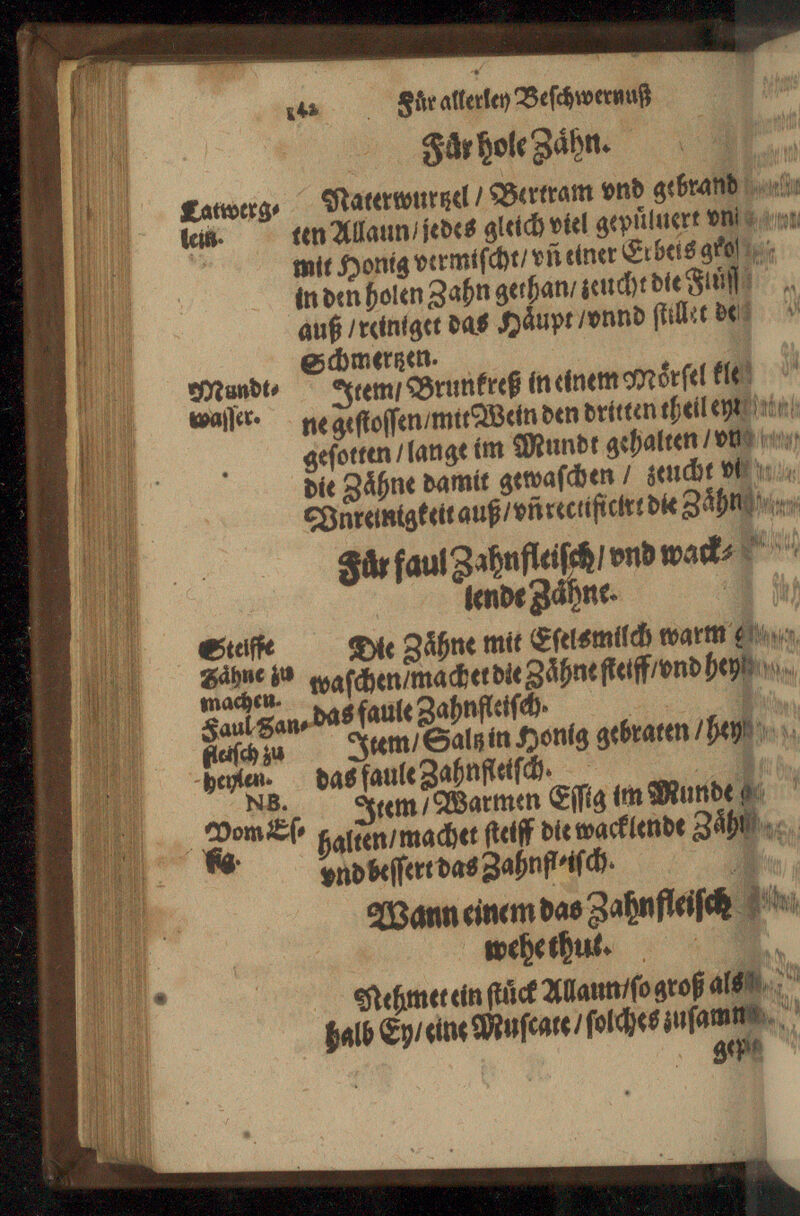 142 Für allerley Beschwernuß
Für hole Zåhn.
Latwerg⸗
lein.
Naterwurtzel / Bertram vnd gebrand
ten Allaun / jedes gleich viel gepülvert
mit Honig vermischt / vñ einer Erbeis
in den holen Zahn gethan / zeucht die
auß / reiniget das Håupt / vnnd stillet
Schmertzen.
Mundt⸗
wasser.
Item / Brunkreß in einem Mörsel
ne gestossen / mit Wein den dritten theil
gesotten / lange im Mundt gehalten /
die Zåhne damit gewaschen / zeucht
Vnreinigkeit auß / vñ rectificirt die
Für faul Zahnfleisch / vnd wack⸗
lende Zåhne.
Steiffe
Zåhne zu
machen.
Die Zåhne mit Eselsmilch warm
waschen / machet die Zåhne steiff / vnd
das faule Zahnfleisch.
Faul Zan⸗
fleisch zu
heylen.
Item / Saltz in Honig gebraten /
das faule Zahnfleisch.
NB.
Vom Es⸗
sig.
Item / Warmen Essig im Munde
halten / machet steiff die wacklende
vnd bessert das Zahnfleisch.
Wann einem das Zahnfleisch
wehe thut.
Nehmet ein stück Allaun / so groß als
halb Ey / eine Muscate / solches